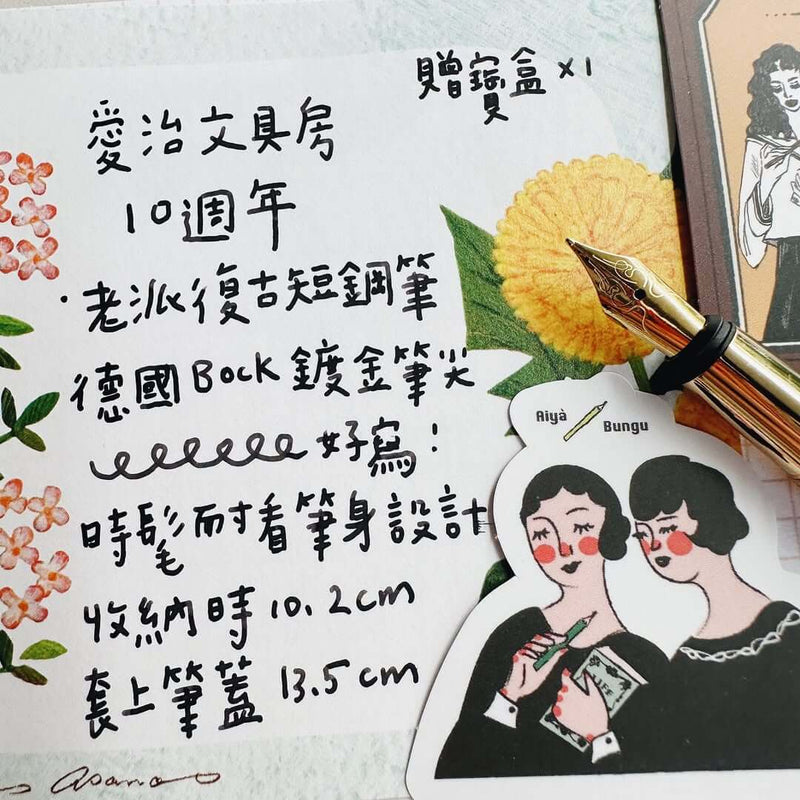 贈寶盒 x1
愛治文具房
10週年
·老派復古短鋼筆
德國Bock鍍金筆尖
好寫!
時髦耐看筆身設計
收納時10.2cm
套上筆蓋 13.5cm
Aiyà Bungu
LIFE